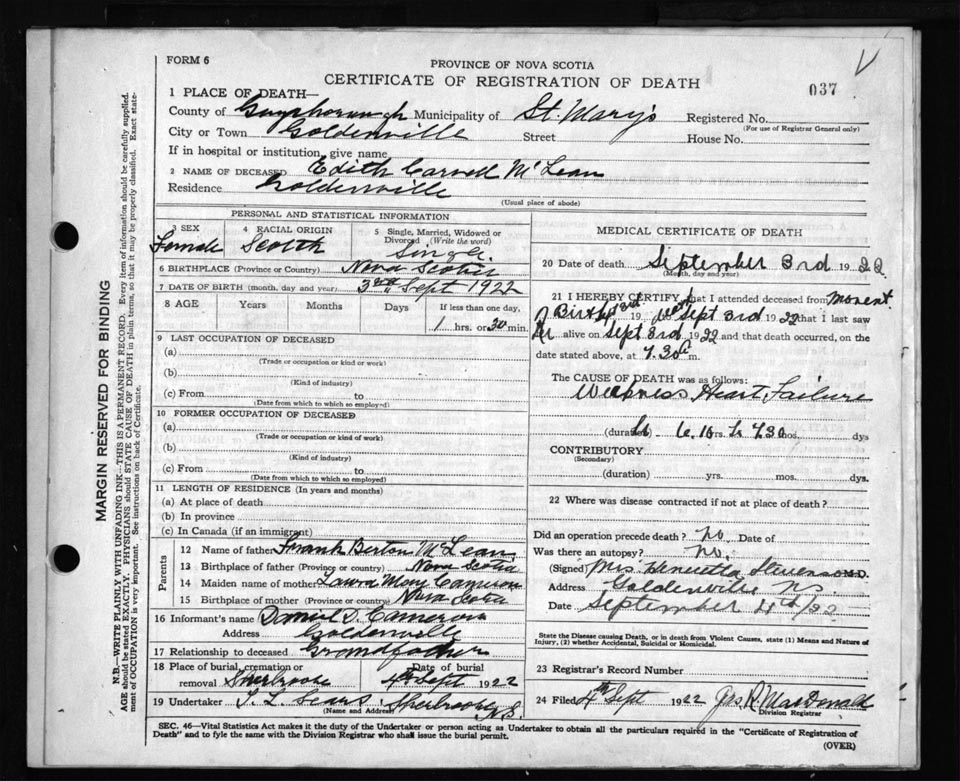 FORM 6
PROVINCE OF NOVA SCOTIA
CERTIFICATE OF REGISTRATION OF DEATH
037
1 PLACE OF DEATH—
County of Guysborough Municipality of St. Mary's Registered No.
(For use of Registrar General only)
City or Town Goldenville Street House No.
If in hospital or institution, give name
2 NAME OF DECEASED Edith Carvell McLean
Residence Goldenville
(Usual place of abode)
PERSONAL AND STATISTICAL INFORMATION
3 SEX Female
4 RACIAL ORIGIN Scotch
5 Single, Married, Widowed or Divorced (Write the word) Single
6 BIRTHPLACE (Province or Country) Nova Scotia
7 DATE OF BIRTH (month, day and year) 3rd Sept 1922
8 AGE Years Months Days If less than one day,
1 hrs. or 30 min.
9 LAST OCCUPATION OF DECEASED
(a)
(Trade or occupation or kind of work)
(b)
(Kind of industry)
(c) From to
(Date from which to which so employed)
10 FORMER OCCUPATION OF DECEASED
(a)
(Trade or occupation or kind of work)
(b)
(Kind of industry)
(c) From to
(Date from which to which so employed)
11 LENGTH OF RESIDENCE (In years and months)
(a) At place of death
(b) In province
(c) In Canada (if an immigrant)
Parents
12 Name of father Frank Berton McLean
13 Birthplace of father (Province or country) Nova Scotia
14 Maiden name of mother Laura Mary Cameron
15 Birthplace of mother (Province or country) Nova Scotia
16 Informant's name Daniel D. Cameron
Address Goldenville
17 Relationship to deceased Grandfather
18 Place of burial, cremation or removal Sherbrooke Date of burial 4th Sept 1922
19 Undertaker T. L. Sears Sherbrooke N.S.
(Name and Address)
MEDICAL CERTIFICATE OF DEATH
20 Date of death September 3rd 1922
(Month, day and year)
21 I HEREBY CERTIFY that I attended deceased from Moment
Birth 3rd 19 Sept 3rd 1922 that I last saw
her alive on Sept 3rd 1922 and that death occurred, on the
date stated above, at 7.30 m.
The CAUSE OF DEATH was as follows:
Weakness Heart Failure
(duration) 6. to 7.30 yrs. mos. dys
CONTRIBUTORY
(Secondary)
(duration) yrs. mos. dys
22 Where was disease contracted if not at place of death?
Did an operation precede death? No
Was there an autopsy? No.
(Signed) Mrs Henrietta Stevenson M.D.
Address Goldenville N.S.
Date September 4th/22
State the Disease causing Death, or in death from Violent Causes, state (1) Means and Nature of
Injury, (2) whether Accidental, Suicidal or Homicidal.
23 Registrar's Record Number
24 Filed 4th Sept 1922 Jas. R. MacDonald
Division Registrar
SEC. 46—Vital Statistics Act makes it the duty of the Undertaker or person acting as Undertaker to obtain all the particulars required in the "Certificate of Registration of
Death" and to fyle the same with the Division Registrar who shall issue the burial permit.
(OVER)
MARGIN RESERVED FOR BINDING
N.B.—WRITE PLAINLY WITH UNFADING INK—THIS IS A PERMANENT RECORD. Every item of information should be carefully supplied.
AGE should be stated EXACTLY. PHYSICIANS should STATE CAUSE OF DEATH in plain terms, so that it may be properly classified. Exact state-
ment of OCCUPATION is very important. See instructions on back of Certificate.